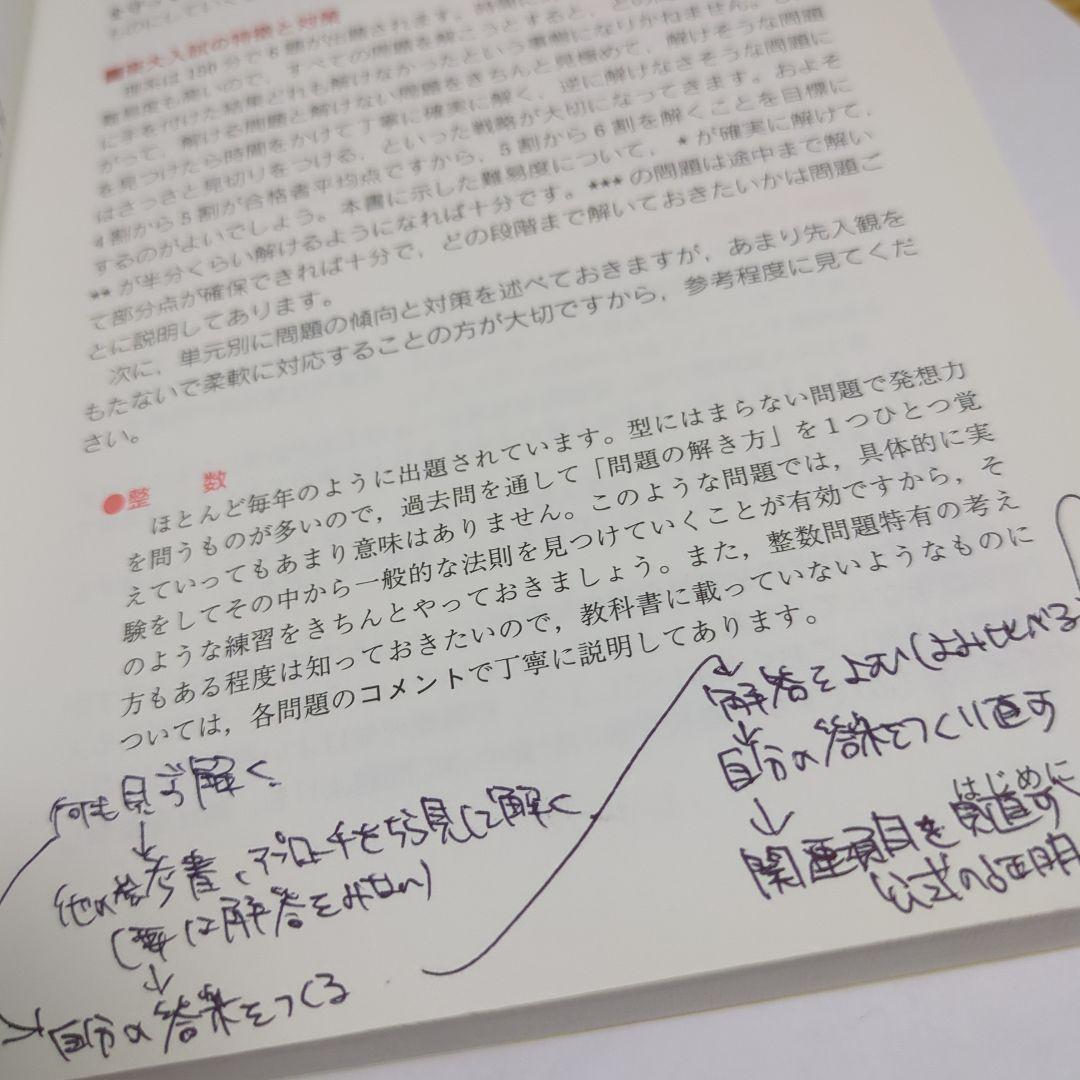 ■京大入試の特徴と対策
理系は150分で6題が出題されます。
難易度も高いので，すべての問題を解こうとすると，
に手を付けた結果どれも解けなかったという事態になりかねません。
がって，解ける問題と解けない問題をきちんと見極めて，解けそうな問題に
を見つけたら時間をかけて丁寧に確実に解く，逆に解けなさそうな問題
はさっさと見切りをつける，といった戦略が大切になってきます。およそ
4割から5割が合格者平均点ですから，5割から6割を解くことを目標に
するのがよいでしょう。本書に示した難易度について，* が確実に解けて，
** が半分くらい解けるようになれば十分です。*** の問題は途中まで解い
て部分点が確保できれば十分で，どの段階まで解いておきたいかは問題ご
とに説明してあります。
次に，単元別に問題の傾向と対策を述べておきますが，あまり先入観を
もたないで柔軟に対応することの方が大切ですから，参考程度に見てくだ
さい。
●整 数
ほとんど毎年のように出題されています。型にはまらない問題で発想力
を問うものが多いので，過去問を通して「問題の解き方」を1つひとつ覚
えていってもあまり意味はありません。このような問題では，具体的に実
験をしてその中から一般的な法則を見つけていくことが有効ですから，そ
のような練習をきちんとやっておきましょう。また，整数問題特有の考え
方もある程度は知っておきたいので，教科書に載っていないようなものに
ついては，各問題のコメントで丁寧に説明してあります。
何も見ず解く
↓
他の参考書、アプローチをちら見して解く
(華は解答をみない)
↓
自分の答案をつくる
解答をよむ(よみ比べる
↓
自分の答案をつくり直す
↓
はじめに
関連項目を見直す
公式の証明